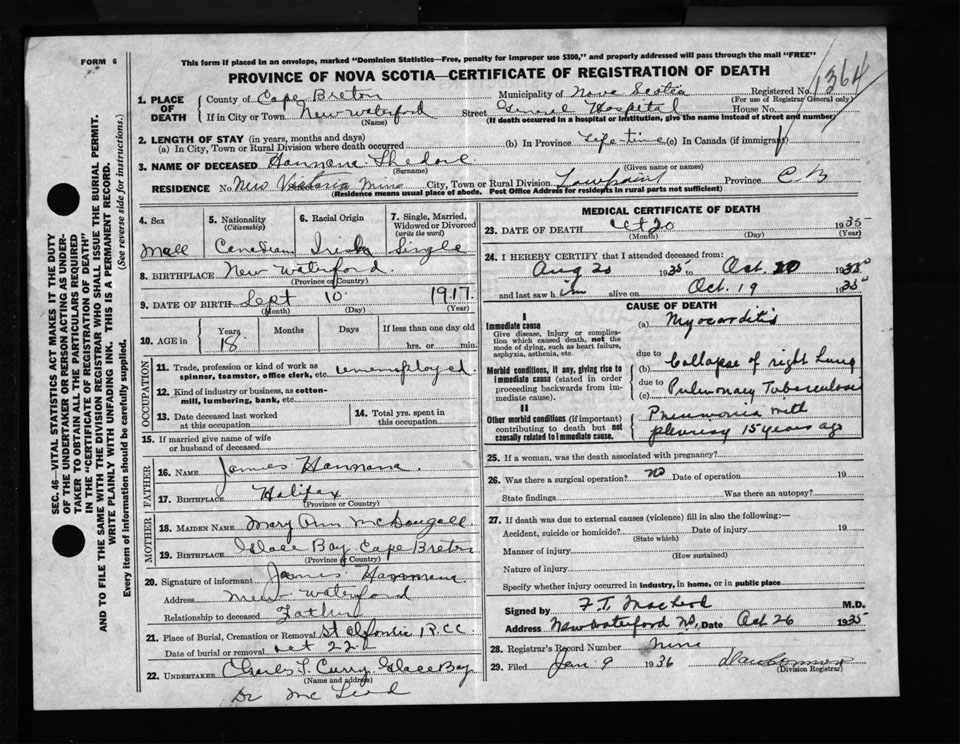 FORM 6
This form if placed in an envelope, marked "Dominion Statistics—Free, penalty for improper use $300," and properly addressed will pass through the mail "FREE"
PROVINCE OF NOVA SCOTIA—CERTIFICATE OF REGISTRATION OF DEATH
1364
1. PLACE OF DEATH
County of Cape Breton Municipality of Nova Scotia Registered No.
(For use of Registrar General only)
If in City or Town New Waterford Street General Hospital House No.
(Name) (If death occurred in a hospital or institution, give the name instead of street and number)
2. LENGTH OF STAY (in years, months and days)
(a) In City, Town or Rural Division where death occurred (b) In Province Life-time (c) In Canada (if immigrant)
3. NAME OF DECEASED Hannana
(Surname) (Given name or names)
RESIDENCE No. New Victoria Mine City, Town or Rural Division Province C B
(Residence means usual place of abode. Post Office Address for residents in rural parts not sufficient)
4. Sex 5. Nationality (Citizenship) 6. Racial Origin 7. Single, Married, Widowed or Divorced (write the word)
Mall Canadian Irish Single
8. BIRTHPLACE New Waterford.
(Province or Country)
9. DATE OF BIRTH Sept 10 1917.
(Month) (Day) (Year)
10. AGE in Years Months Days If less than one day old
18 hrs. or min.
OCCUPATION
11. Trade, profession or kind of work as spinner, teamster, office clerk, etc. unemployed.
12. Kind of industry or business, as cotton-mill, lumbering, bank, etc.
13. Date deceased last worked at this occupation 14. Total yrs. spent in this occupation
15. If married give name of wife or husband of deceased
FATHER
16. NAME James Hannana.
17. BIRTHPLACE Halifax
(Province or Country)
MOTHER
18. MAIDEN NAME Mary Ann McDougall
19. BIRTHPLACE Glace Bay Cape Breton
(Province or Country)
20. Signature of informant James Hannana
Address New Waterford
Relationship to deceased Father
21. Place of Burial, Cremation or Removal St R.C.C.
Date of burial or removal Oct 22
22. UNDERTAKER Charles L. Curry Glace Bay
(Name and address)
Dr Mc Leod
MEDICAL CERTIFICATE OF DEATH
23. DATE OF DEATH Oct 20 1935
(Month) (Day) (Year)
24. I HEREBY CERTIFY that I attended deceased from:
Aug 20 1935 to Oct. 20 1935
and last saw him alive on Oct. 19 1935
CAUSE OF DEATH
I
Immediate cause
Give disease, injury or complication which caused death, not the mode of dying, such as heart failure, asphyxia, asthenia, etc.
(a) Myocarditis
due to
Morbid conditions, if any, giving rise to immediate cause (stated in order proceeding backwards from immediate cause).
(b) Collapse of right lung
due to
(c) Pulmonary Tuberculosis
II
Other morbid conditions (if important) contributing to death but not causally related to immediate cause.
Pneumonia with
pleurisy 15 years ago
25. If a woman, was the death associated with pregnancy?
26. Was there a surgical operation? No Date of operation 19
State findings Was there an autopsy?
27. If death was due to external causes (violence) fill in also the following:—
Accident, suicide or homicide? Date of injury 19
(State which)
Manner of injury
(How sustained)
Nature of injury
Specify whether injury occurred in industry, in home, or in public place
Signed by F.T. MacLeod M.D.
Address New Waterford NS, Date Oct 26 1935
28. Registrar's Record Number Nine
29. Filed Jan 9 1936
(Division Registrar)
SEC. 46—VITAL STATISTICS ACT MAKES IT THE DUTY
OF THE UNDERTAKER OR PERSON ACTING AS UNDER-
TAKER TO OBTAIN ALL THE PARTICULARS REQUIRED
IN THE "CERTIFICATE OF REGISTRATION OF DEATH"
AND TO FILE THE SAME WITH THE DIVISION REGISTRAR WHO SHALL ISSUE THE BURIAL PERMIT.
WRITE PLAINLY WITH UNFADING INK. THIS IS A PERMANENT RECORD.
Every item of information should be carefully supplied. (See reverse side for instructions.)